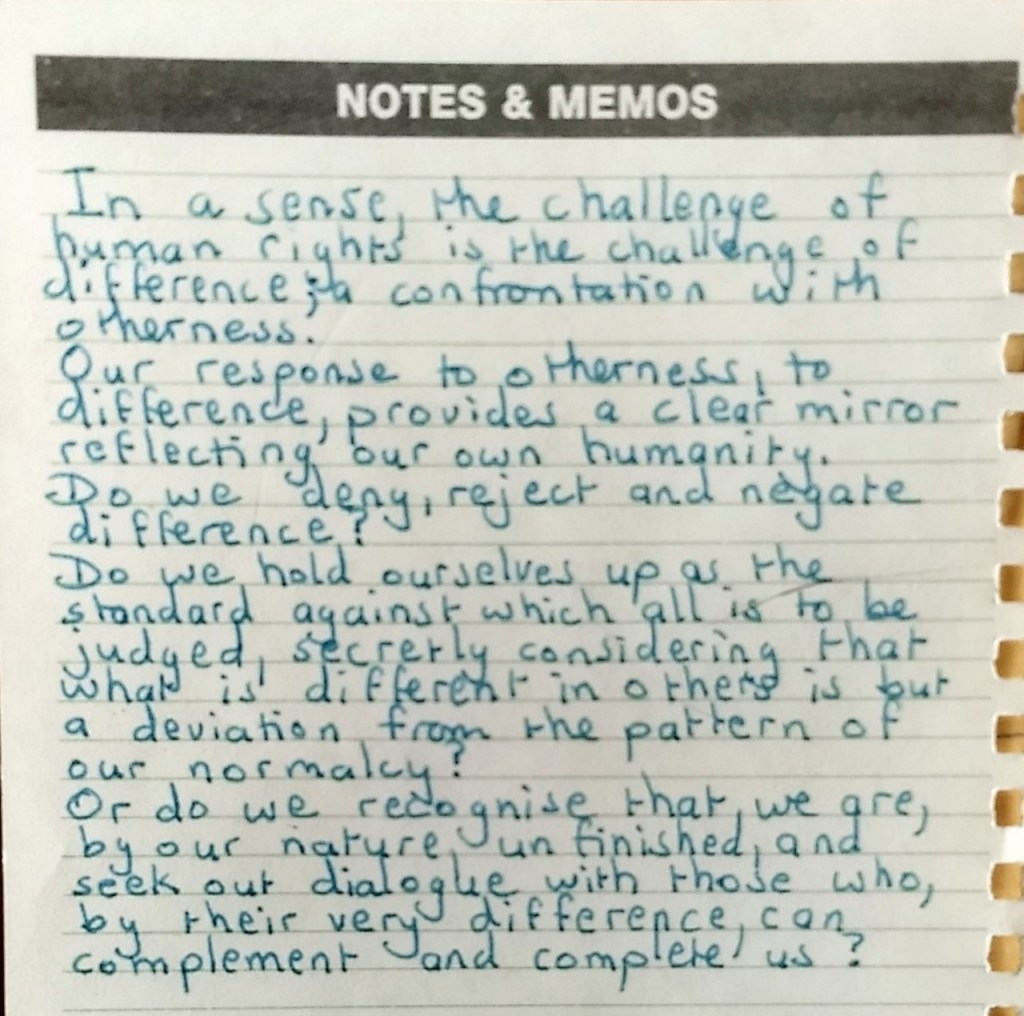 NOTES & MEMOS
In a sense, the challenge of
human rights is the challenge of
difference; a confrontation with
otherness.
Our response to otherness, to
difference, provides a clear mirror
reflecting our own humanity.
Do we deny, reject and negate
difference?
Do we hold ourselves up as the
standard against which all is to be
judged, secretly considering that
what is different in others is but
a deviation from the pattern of
our normalcy?
Or do we recognise that, we are,
by our nature, unfinished, and
seek out dialogue with those who,
by their very difference, can
complement and complete us?